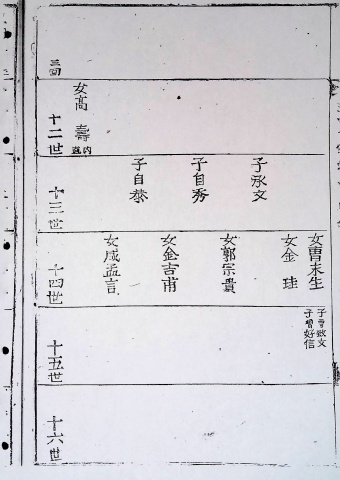 十二世
女高 壽
十三世
子永文
子自秀
子自恭
十四世
女曺末生
女金 珪
女郭宗貴
女金吉甫
女咸孟言
子曺致文
子曺好信
十五世
十六世